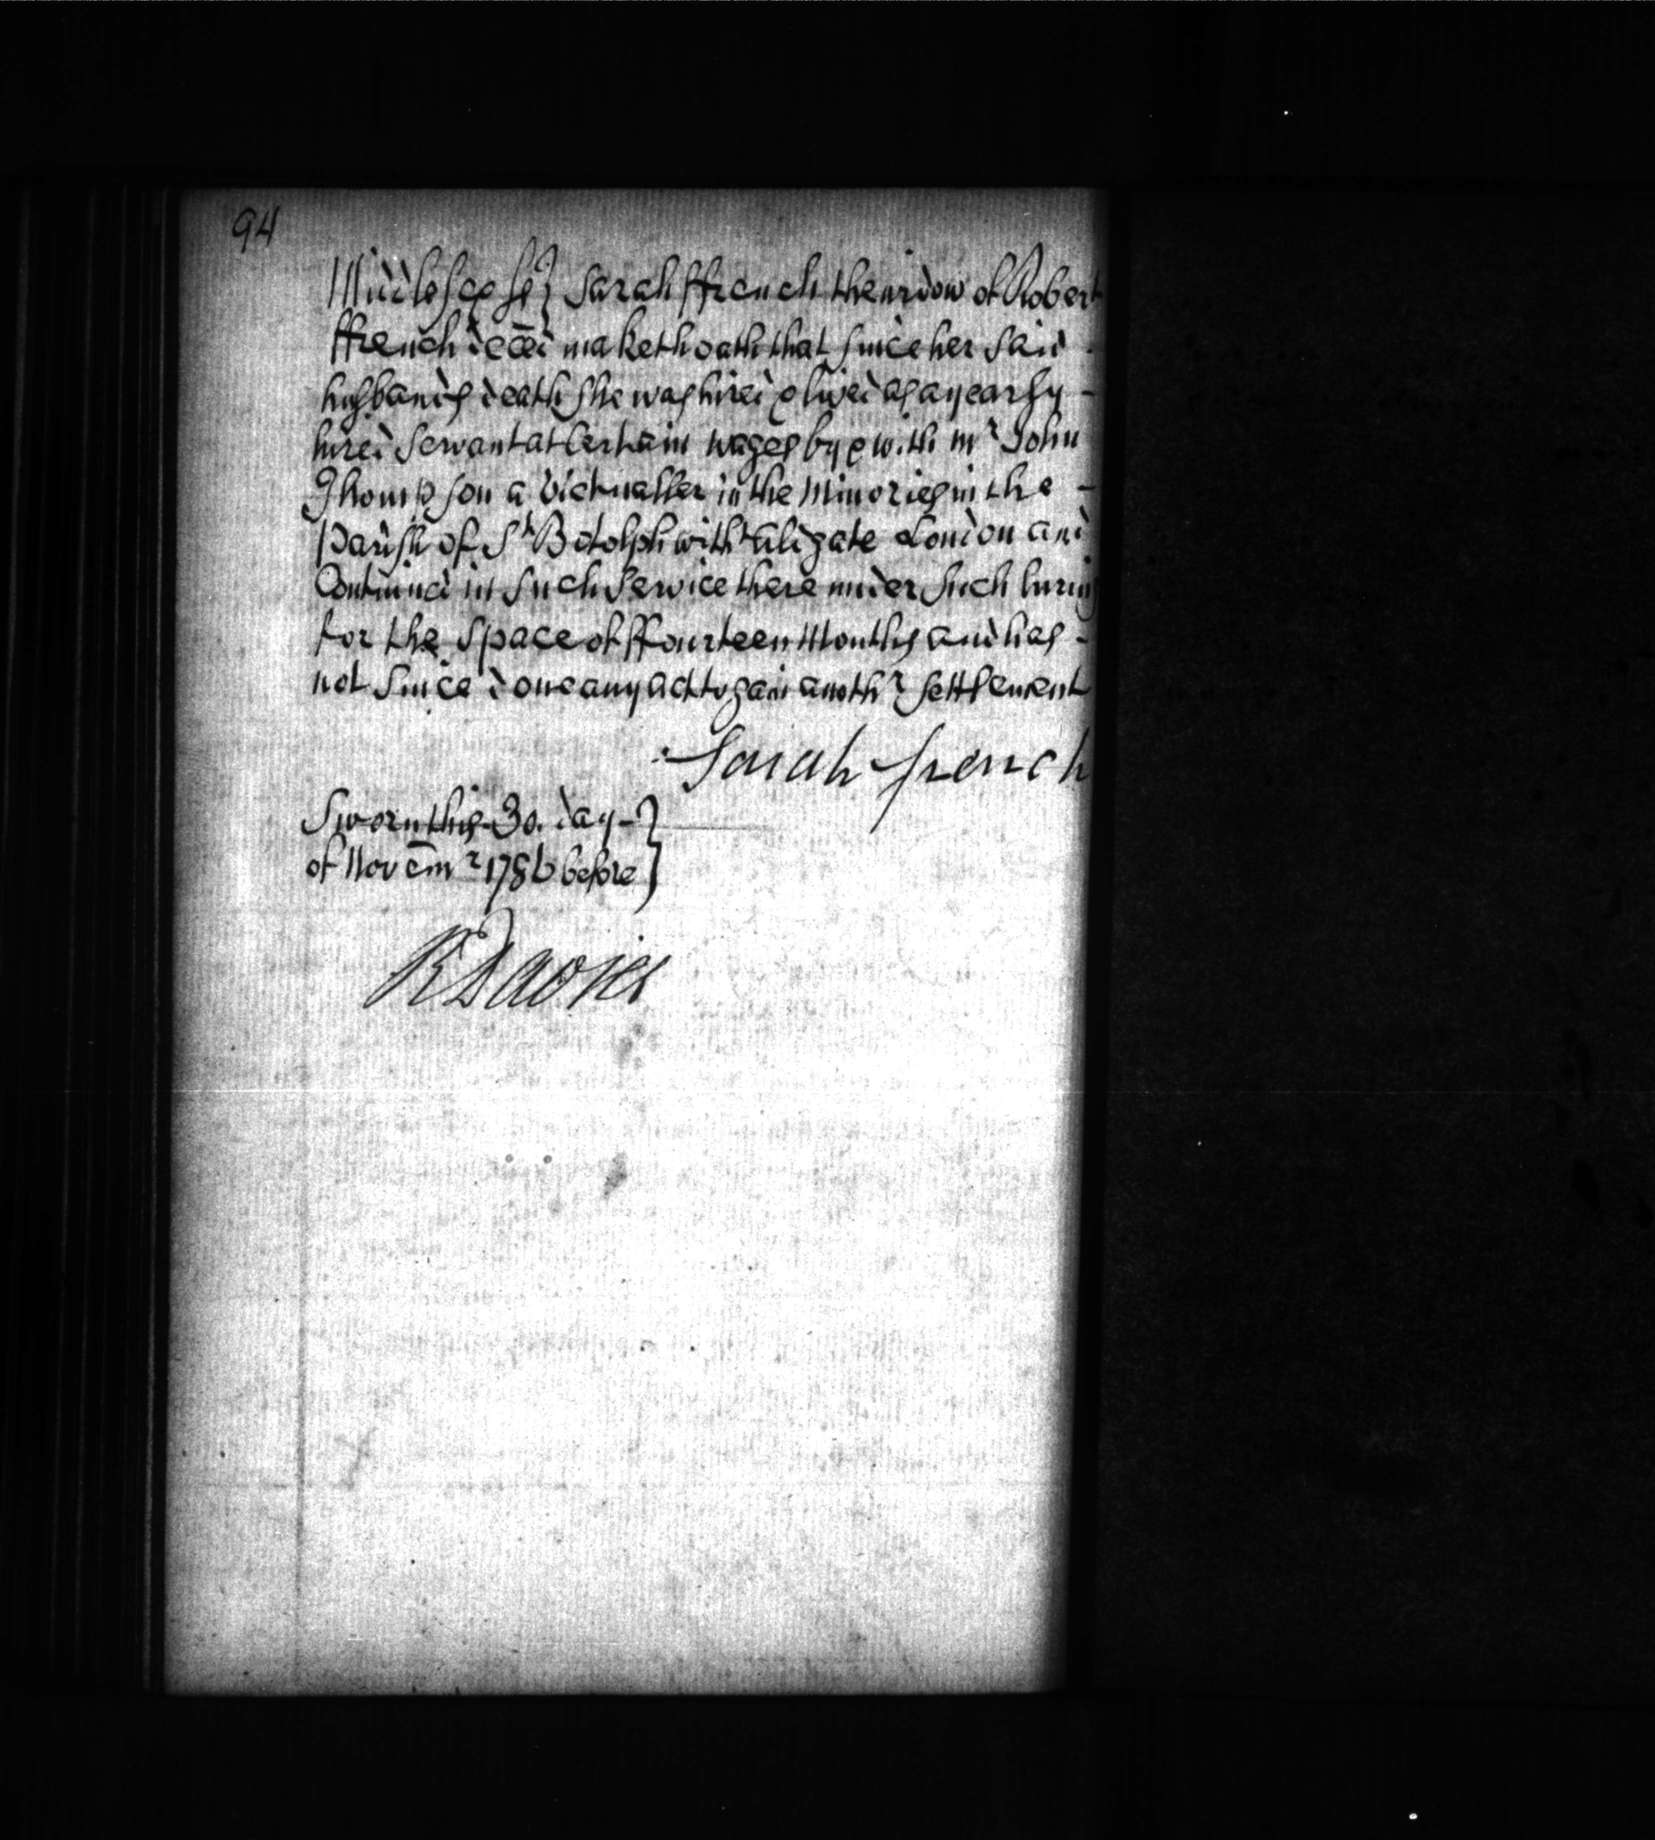 94
Midlesex ss} Sarah ffrench the widow of Robert
ffrench deced maketh oath that since her said
husbands death she was hired & lived as a yearly -
hired servant at Certain wages by & with mr John
Thompson a Victualler in the Minories in the -
Parish of St Botolph witht Aldgate London and
Continued in such service there under such hiring
for the space of ffourteen Months and has -
not since done any act to gain anothr settlement
Sarah french
Sworn this 30. day -}
of Novemr 1786 before}
R Davies